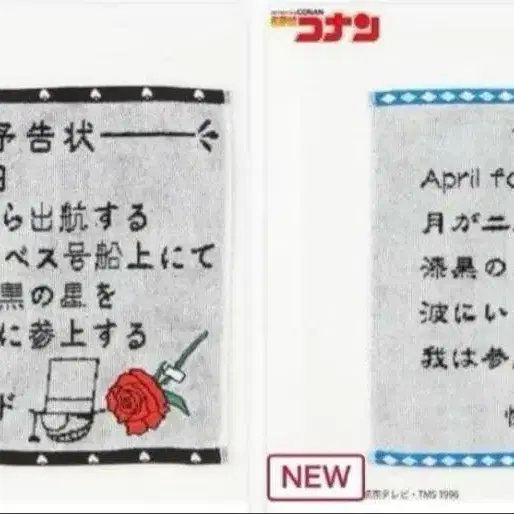 予告状
ら出航する
ベス号船上にて
黒の星を
に参上する
ド
CONAN
名探偵コナン
April fo
月が二
漆黒の
波にい
我は参
NEW
読売テレビ・TMS 1996